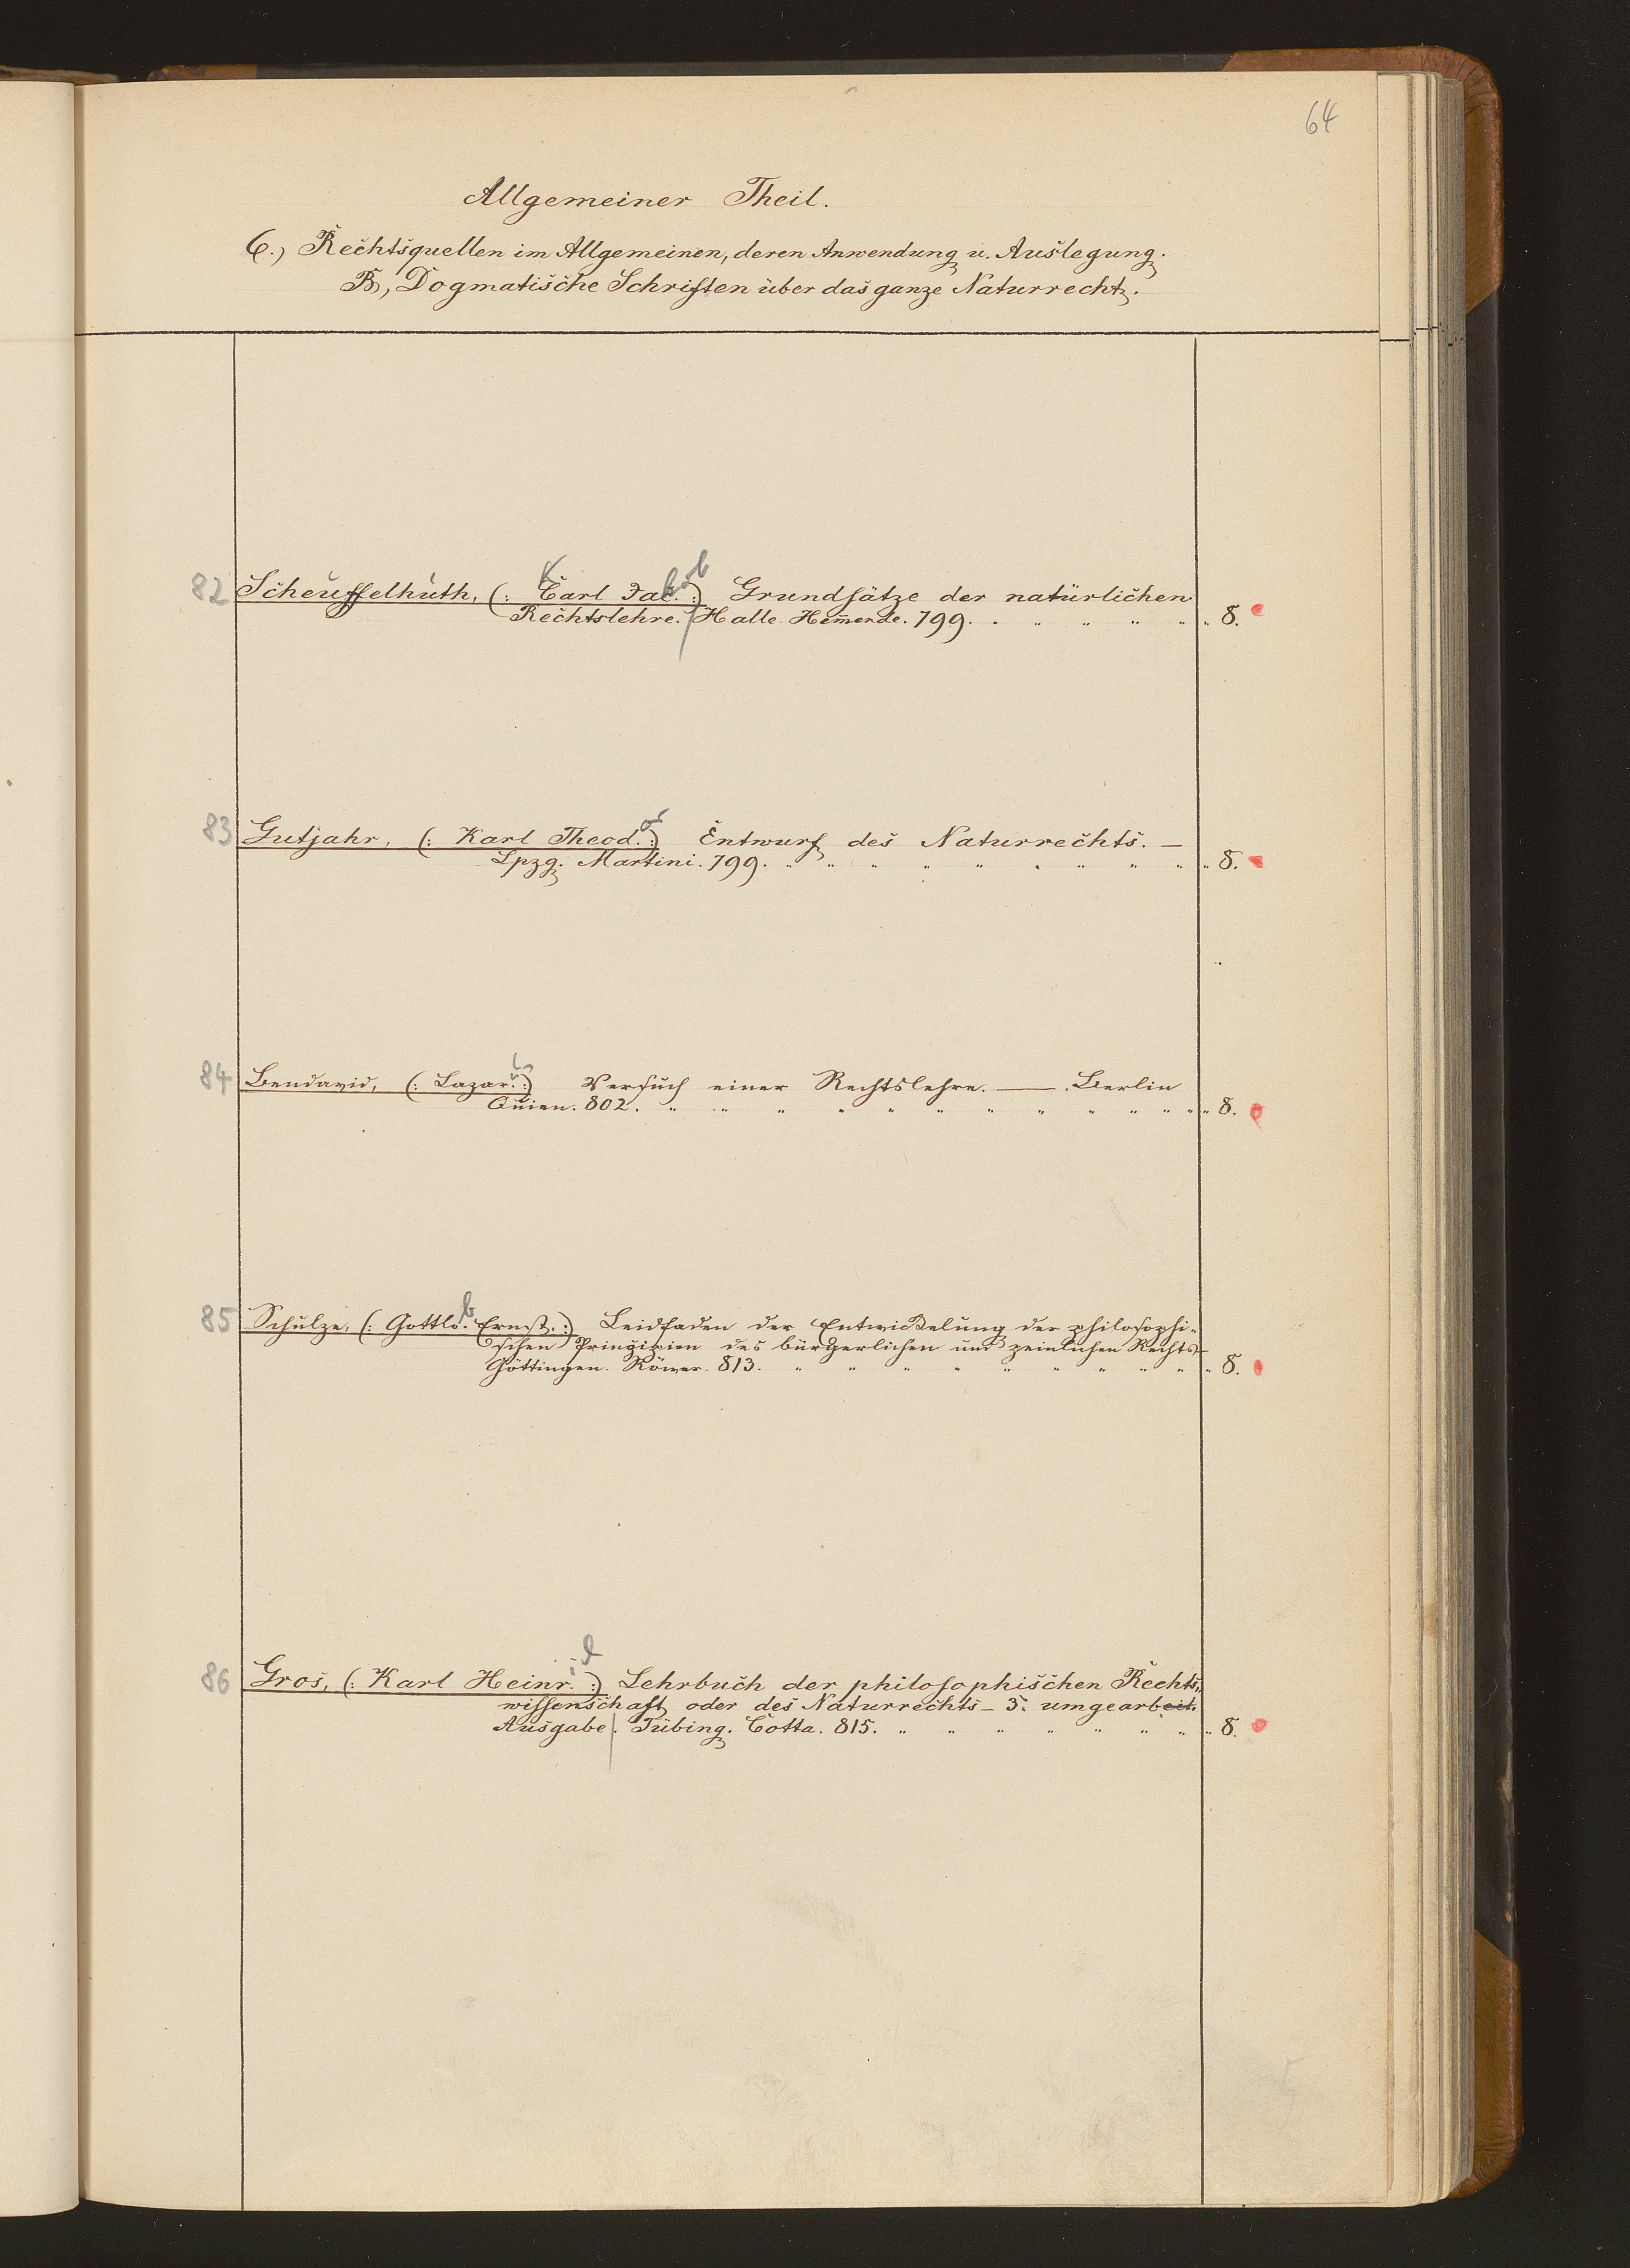 64
Allgemeiner Theil.
6.) Rechtsquellen im Allgemeinen, deren Anwendung u. Auslegung.
B, Dogmatische Schriften über das ganze Naturrecht.
82 Scheuffelhuth, (: Carl Jac. :) Grundsätze der natürlichen
Rechtslehre. Halle. Hem̅erde. 799. . " " " " " 8.
83 Gutjahr, (: Karl Theod. :) Entwurf des Naturrechts. —
Lpzg. Martini. 799. " " " " " " " " " " 8.
84 Bendavid, (: Lazar. :) Versuch einer Rechtslehre. —. Berlin
Quien. 802. " " " " " " " " " " " " " 8.
85 Schulze, (: Gottlo. Ernst. :) Leidfaden der Entwickelung der philosophi-
schen Prinzipien des bürgerlichen und peinlichen Rechts-
Göttingen. Röwer. 813. " " " " " " " " " " 8.
86 Gros, (: Karl Heinr. :) Lehrbuch der philosophischen Rechts„
wissenschaft oder des Naturrechts – 3. umgearbeit.
Ausgabe. Tübing. Cotta. 815. " " " " " " " " 8.